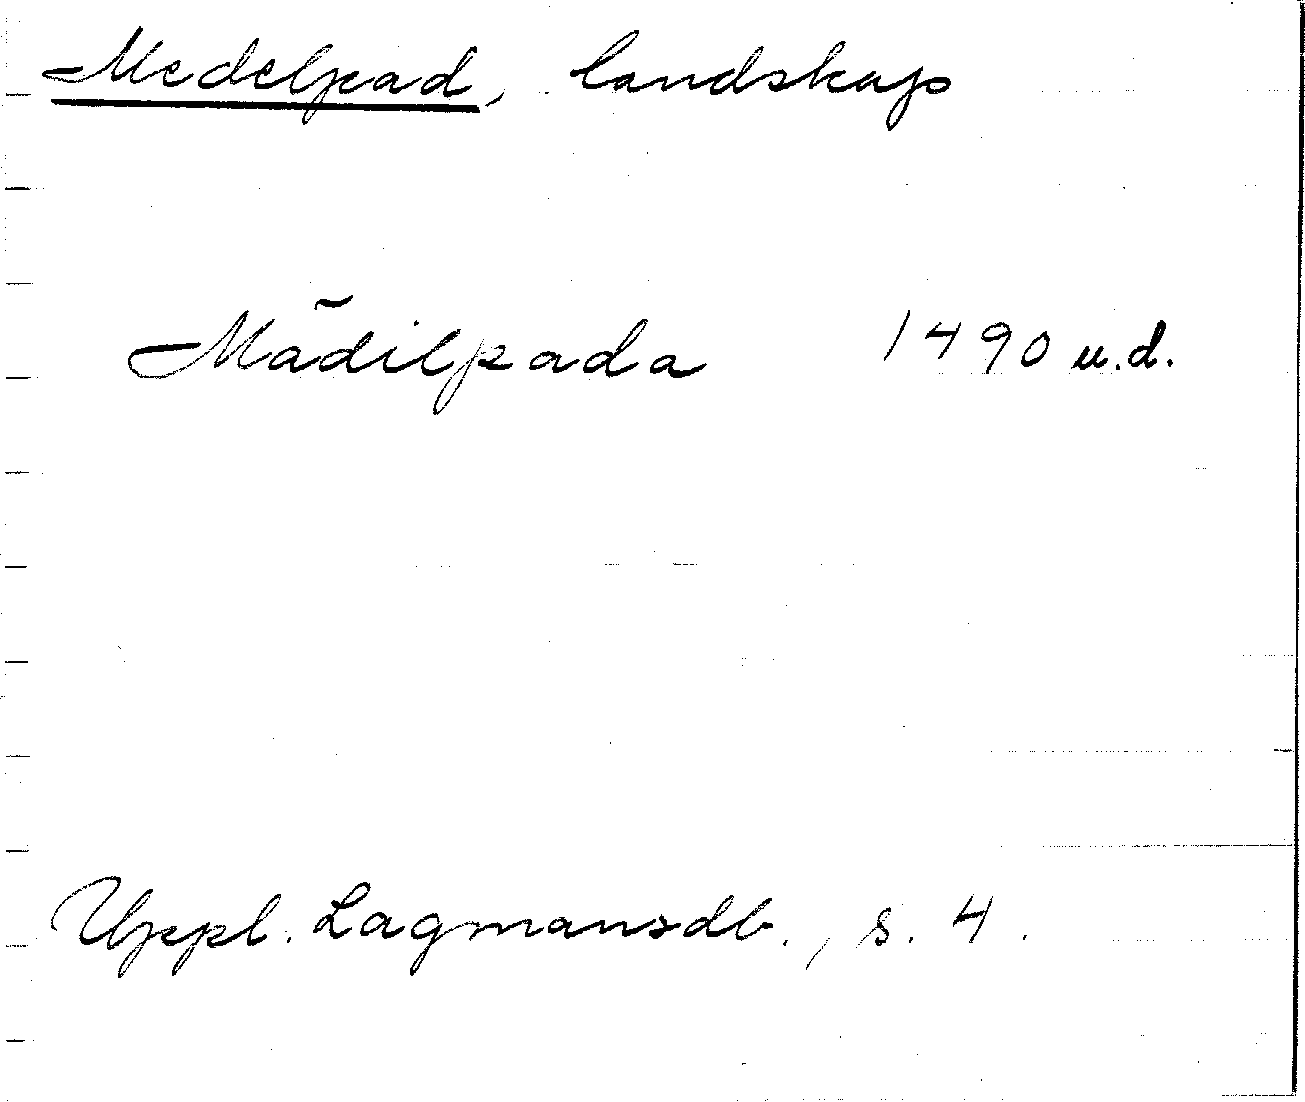 Medelpad, landskap
Mädilpada 1490 u.d.
Uppl. Lagmansdb., s. 4.